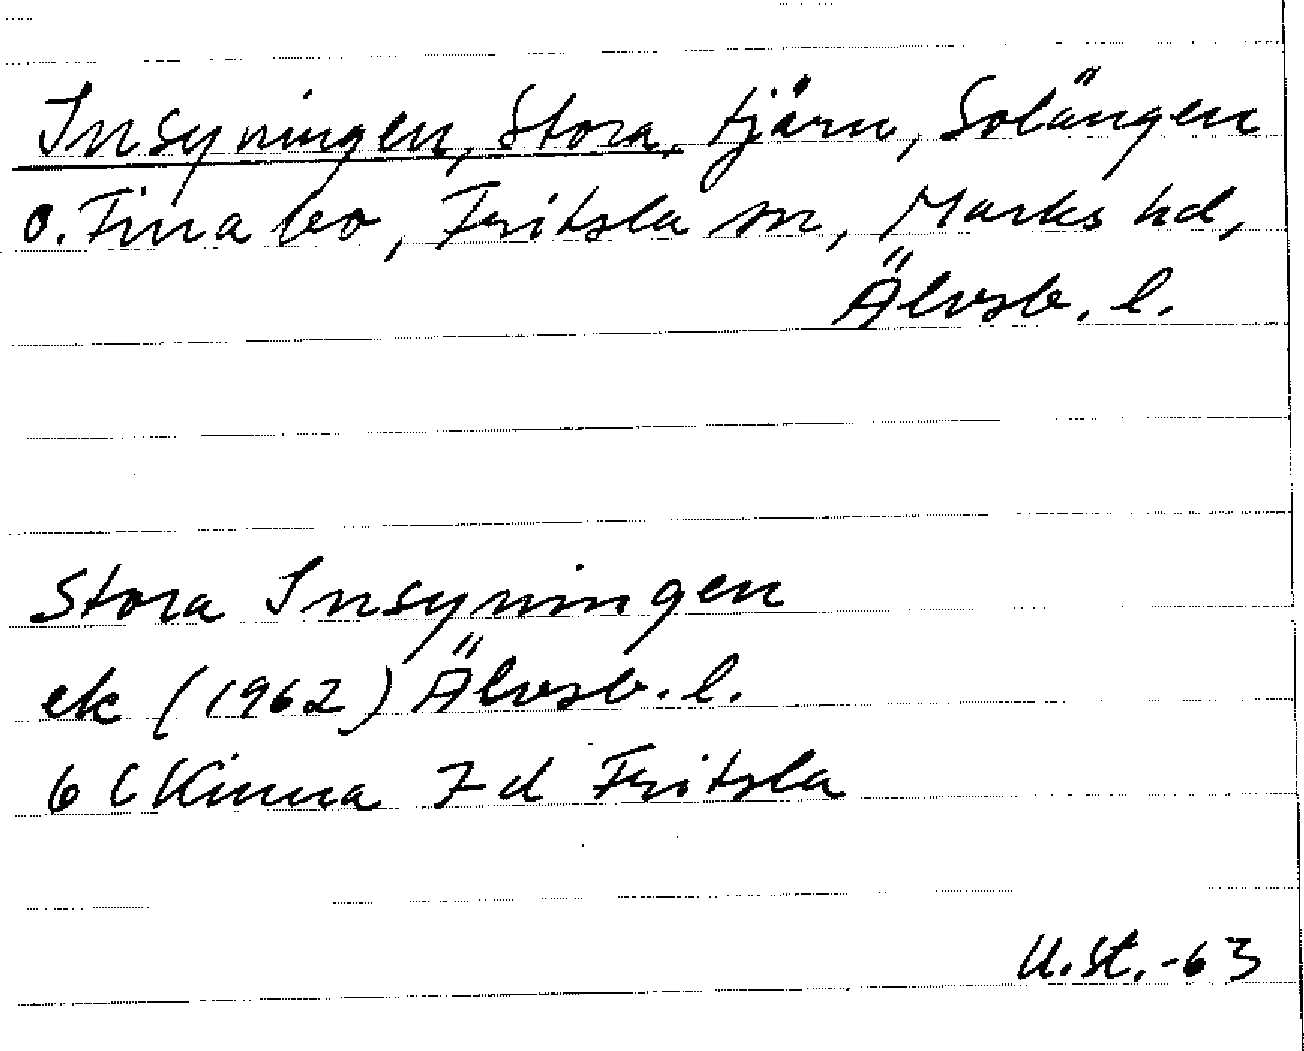 Insyningen, Stora, tjärn, Solängen
o. Finabo, Fritsla sn, Marks hd,
Älvsb. l.
Stora Insyningen
ek (1962) Älvsb. l.
6 C Kinna 7 d Fritsla
U.St.-63